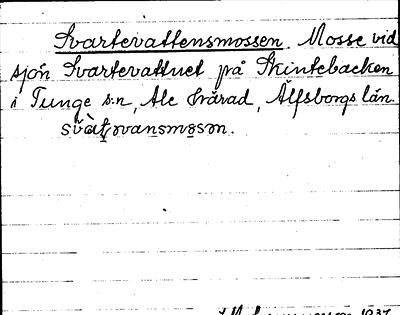 Svartevattensmossen. Mosse vid
sjön Svartevattnet på Skintebacken
i Tunge s:n, Ale härad, Älfsborgs län.
svàt̯ɔvansmɔsɔn.
1937